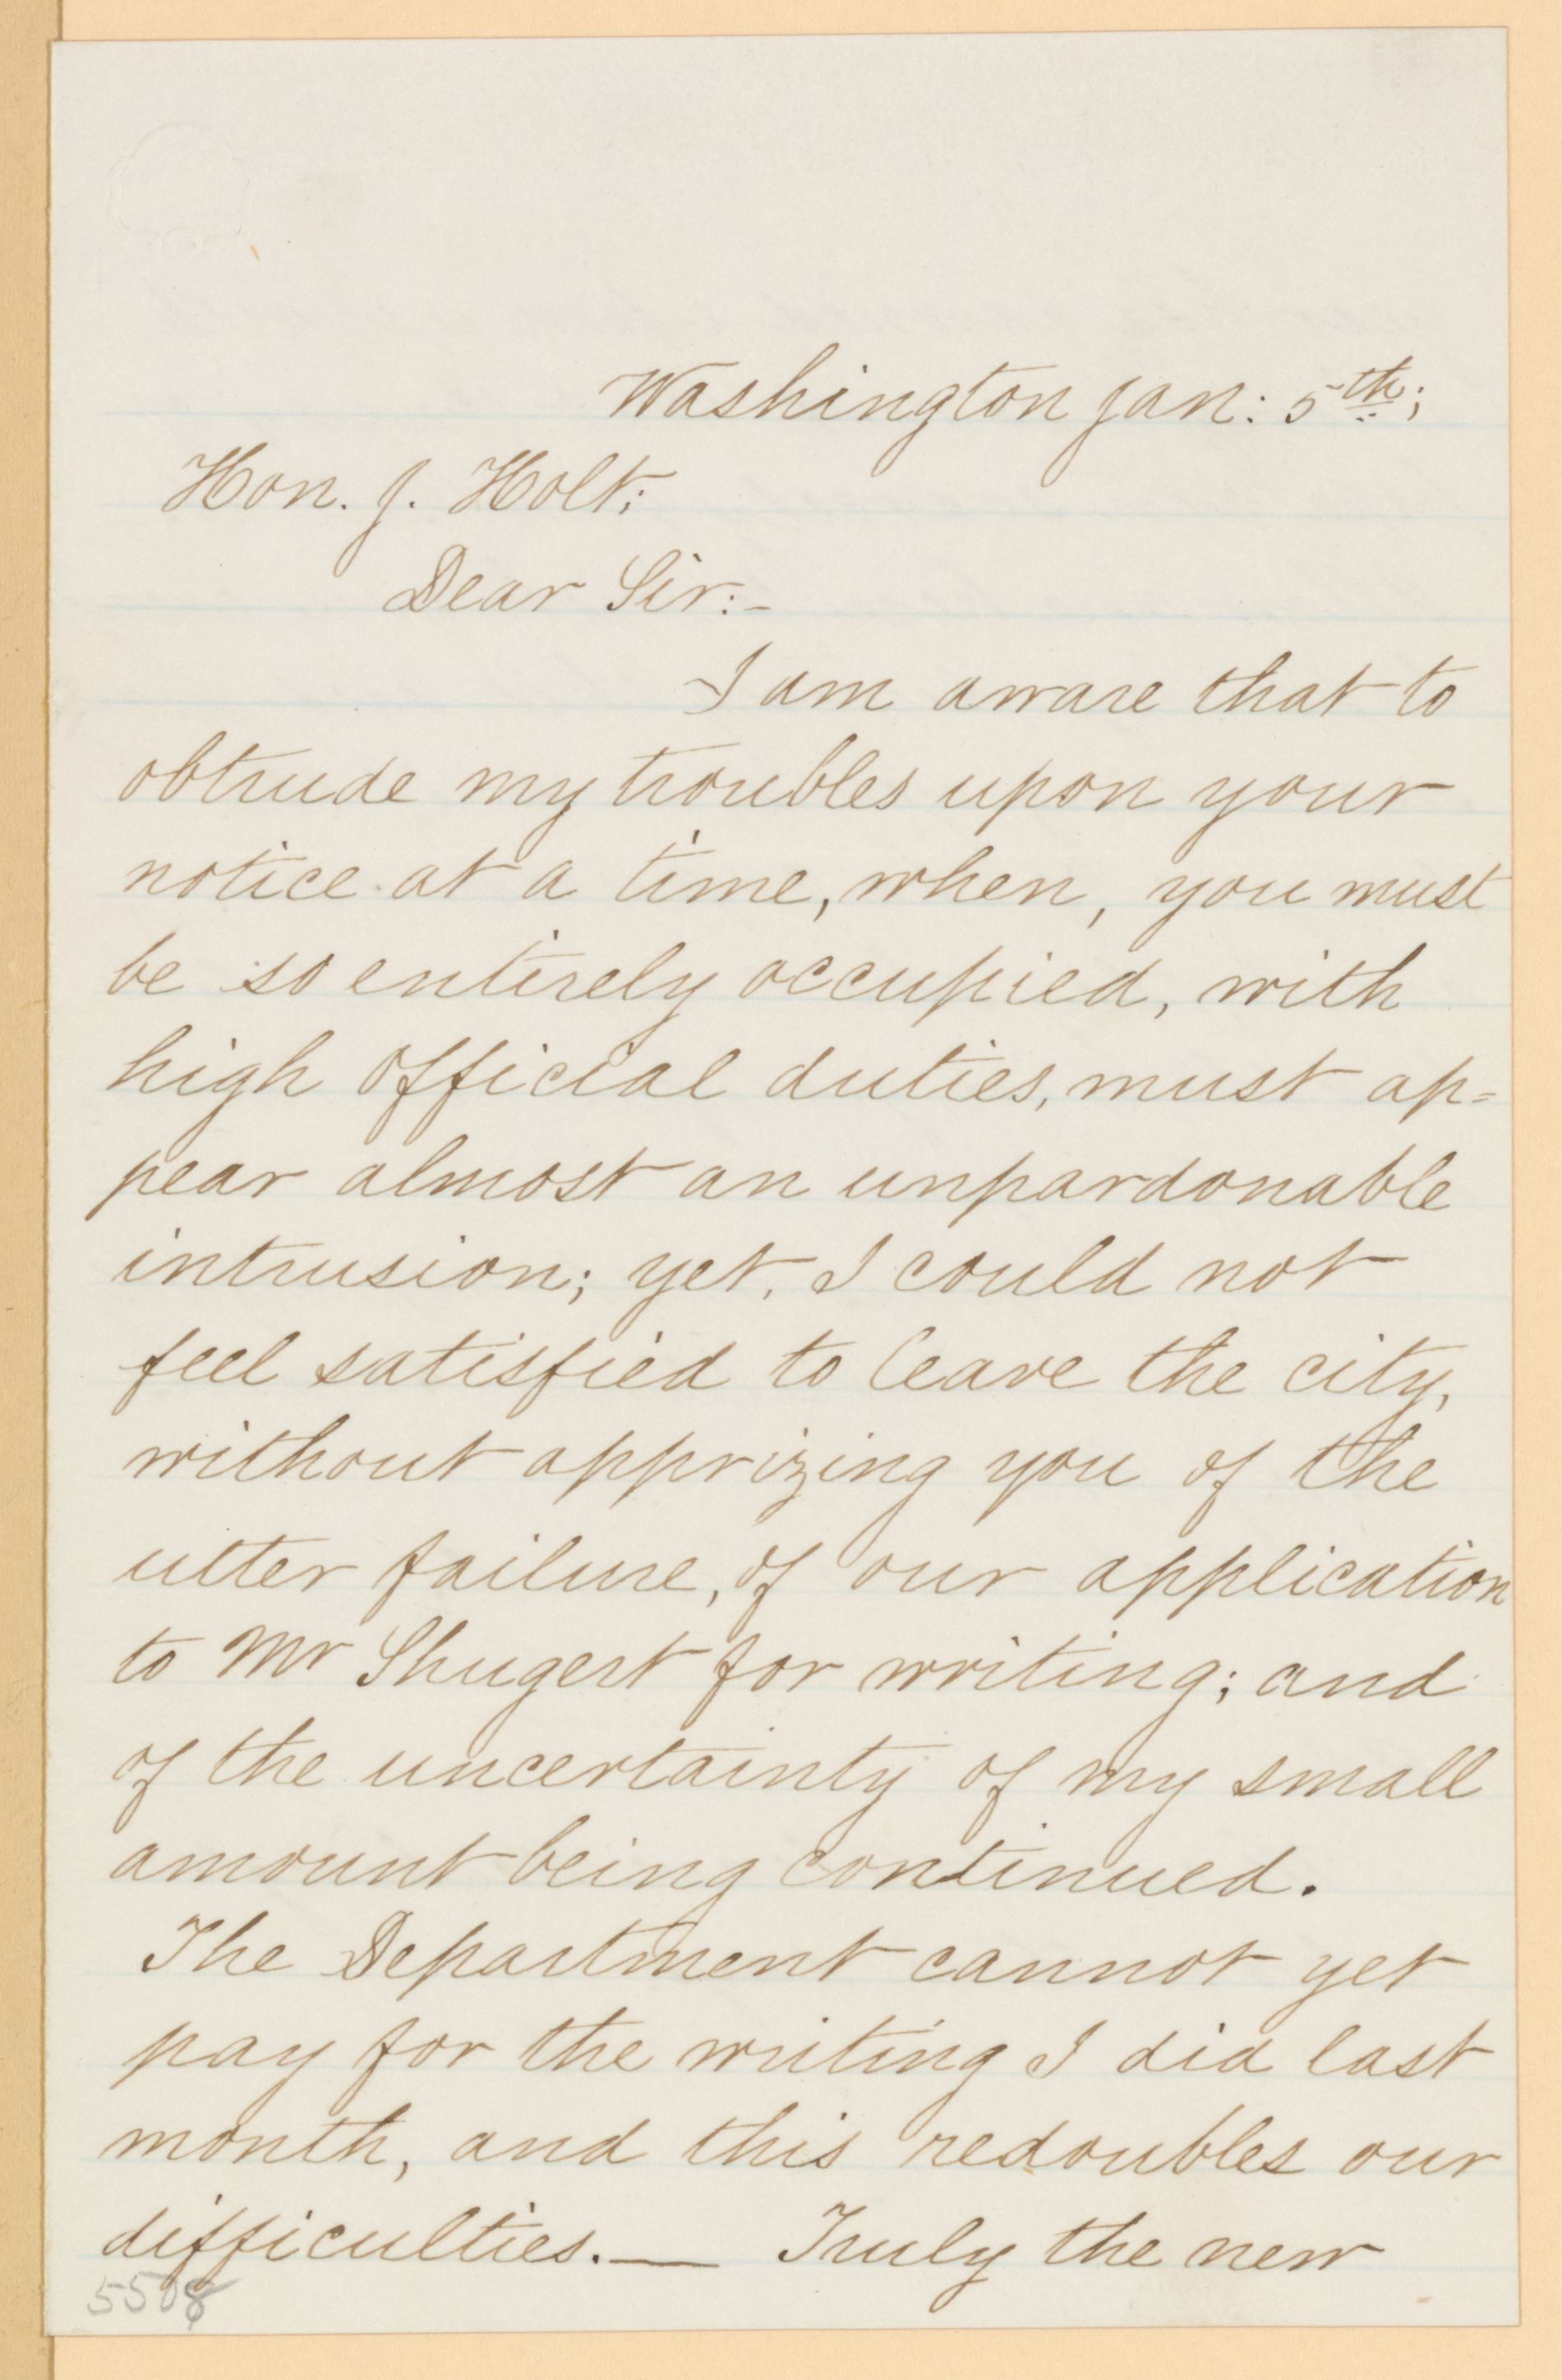 Washington Jan: 5th;
Hon. J. Holt;
Dear Sir:-
I am aware that to
obtrude my troubles upon your
notice at a time, when, you must
be so entirely occupied, with
high official duties, must ap=
pear almost an unpardonable
intrusion; yet, I could not
feel satisfied to leave the city,
without apprizing you of the
utter failure, of our application
to Mr Shugert for writing; and
of the uncertainty of my small
amount being continued.
The Department cannot yet
pay for the writing I did last
month, and this redoubles our
difficulties. — Truly the new
5508